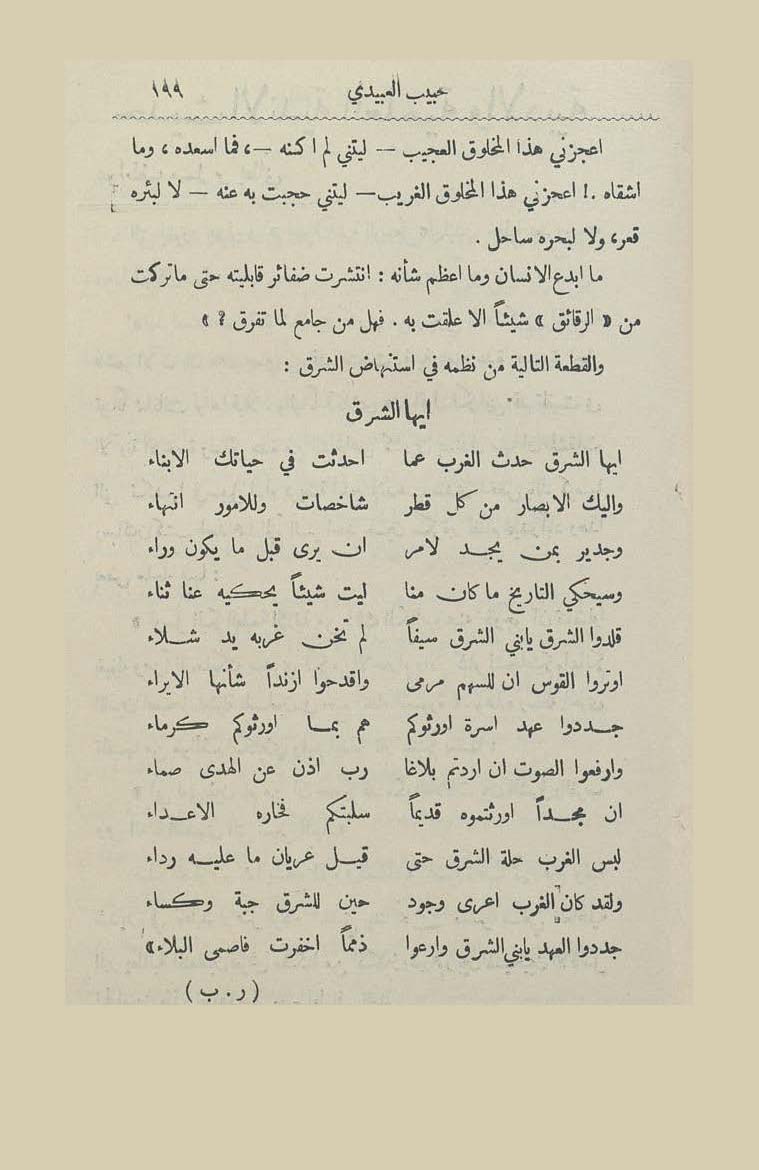 حبيب العبيدي ١٩٩
اعجزني هذا المخلوق العجيب — ليتني لم اكنه —، فما اسعده، وما
اشقاه .! اعجزني هذا المخلوق الغريب — ليتني حجبت به عنه — لا لبئره
قعر، ولا لبحره ساحل .
ما ابدع الانسان وما اعظم شأنه : انتشرت ضفائر قابليته حتى ماتركت
من « الرقائق » شيئاً الا علقت به . فهل من جامع لما تفرق ؟ »
والقطعة التالية من نظمه في استنهاض الشرق :
ايها الشرق
ايها الشرق حدث الغرب عما احدثت في حياتك الابناء
واليك الابصار من كل قطر شاخصات وللامور انتهاء
وجدير بمن يجد لامر ان يرى قبل ما يكون وراء
وسيحكي التاريخ ما كان منا ليت شيئاً يحكيه عنا ثناء
قلدوا الشرق يابني الشرق سيفاً لم تخن غربه يد شلاء
اوتروا القوس ان للسهم مرمى واقدحوا ازنداً شأنها الايراء
جددوا عهد اسرة اورثوكم هم بما اورثوكم كرماء
وارفعوا الصوت ان اردتم بلاغا رب اذن عن الهدى صماء
ان مجداً اورثتموه قديماً سلبتكم فخاره الاعداء
لبس الغرب حلة الشرق حتى قيل عريان ما عليه رداء
ولقد كان الغرب اعرى وجود حين للشرق جبة وكساء
جددوا العهد يابني الشرق وارعوا ذمماً اخفرت فاصمى البلاء»
( ر . ب )